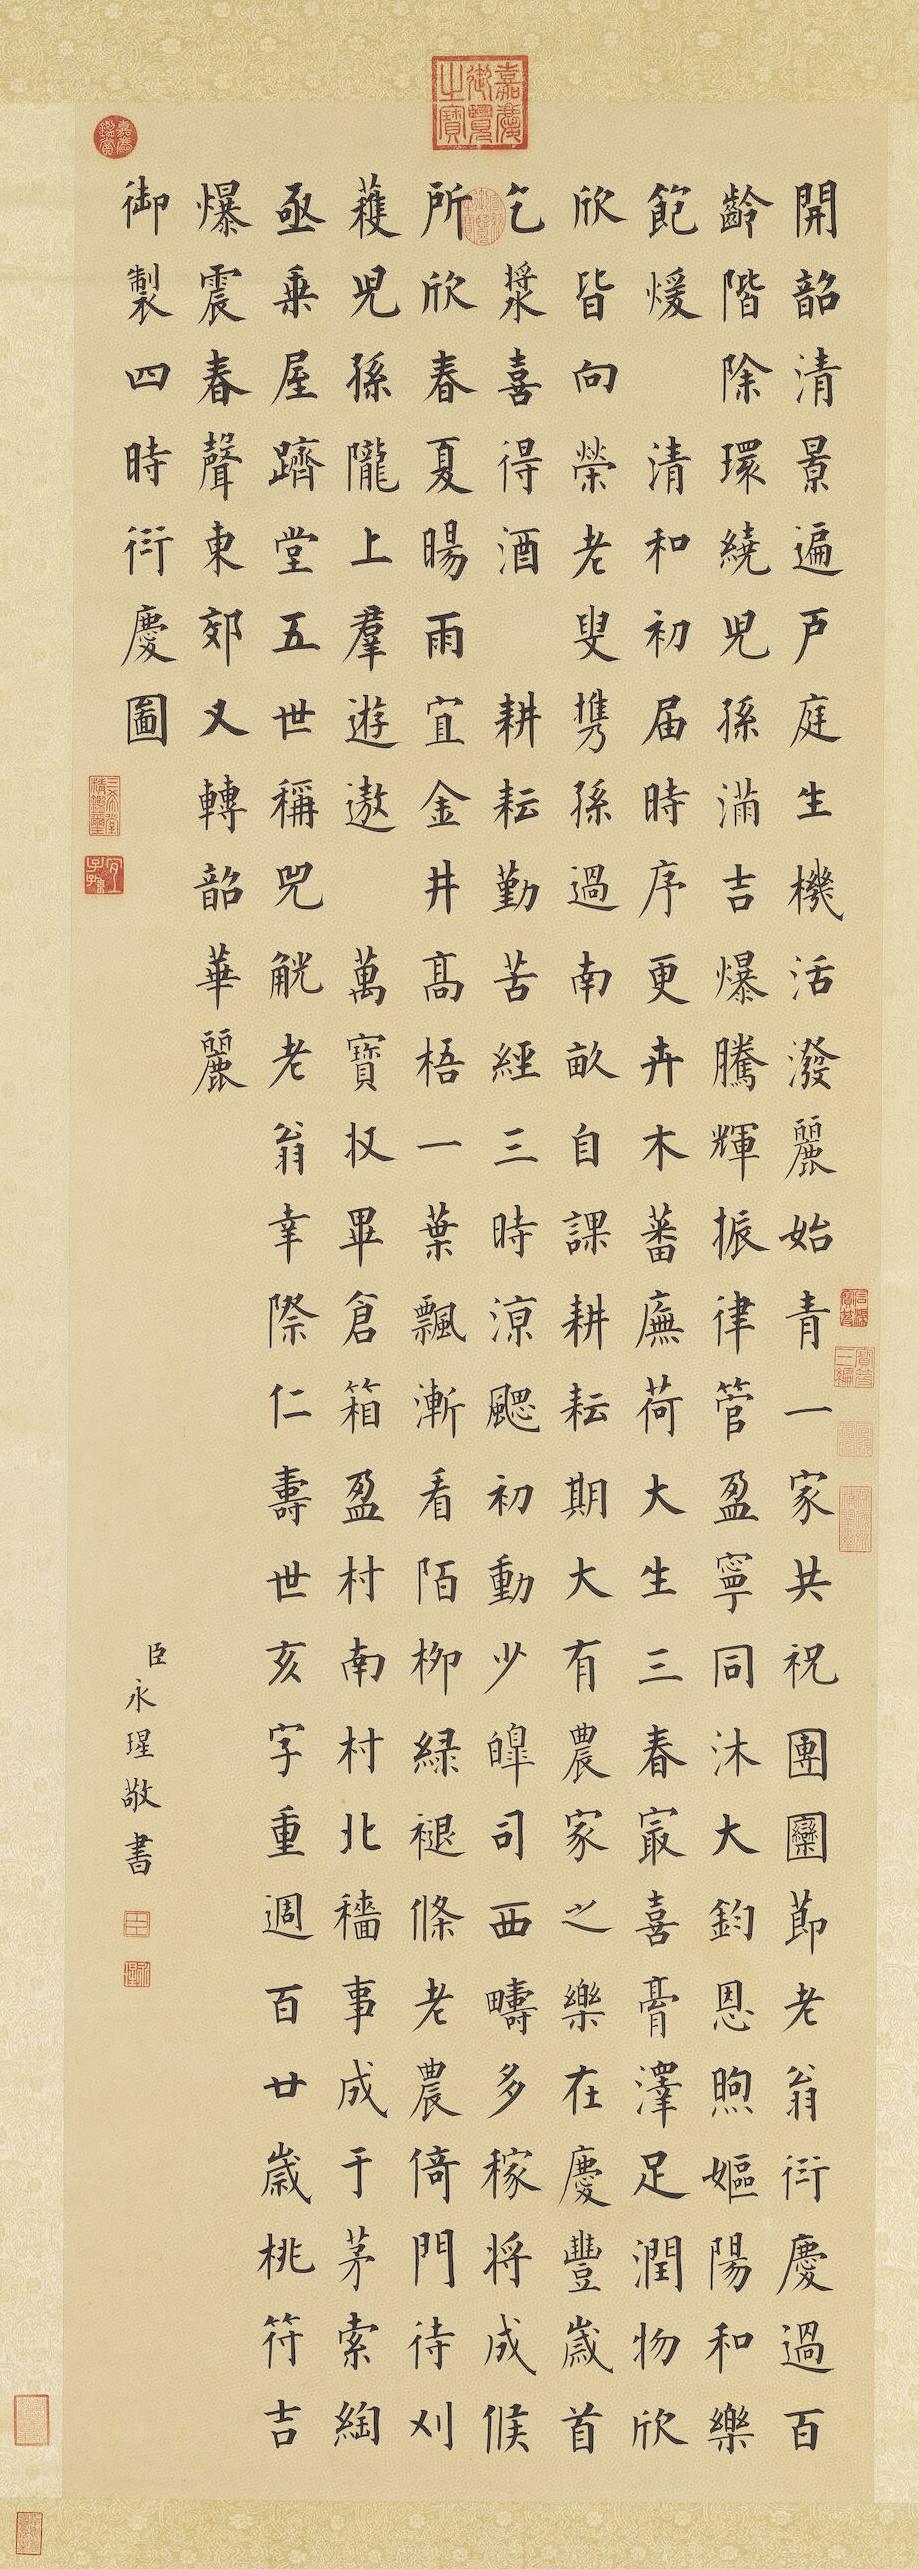 開韶清景遍戸庭生機活潑麗始青一家共祝團圞節老翁衍慶過百
齡階除環繞兒孫滿吉爆騰輝振律管盈寧同沐大鈞恩煦嫗陽和樂
飽煖　清和初届時序更卉木蕃廡荷大生三春冣喜膏澤足潤物欣
欣皆向榮老叟攜孫過南畝自課耕耘期大有農家之樂在慶豐歲首
乞漿喜得酒　耕耘勤苦經三時涼颸初動少皥司西疇多稼將成候
所欣春夏暘雨宜金井高梧一葉飄漸看陌柳綠褪條老農倚門待刈
穫兒孫隴上羣遊遨　萬寶㧞畢倉箱盈村南村北穡事成于茅索綯
亟乗屋躋堂五世稱兕觥老翁幸際仁壽世亥字重週百廿歲桃符吉
爆震春聲東郊又轉韶華麗
御製四時衍慶圖
臣永瑆敬書
嘉慶御覽之寶
嘉慶鑑賞
三希堂精鑑璽
宜子孫